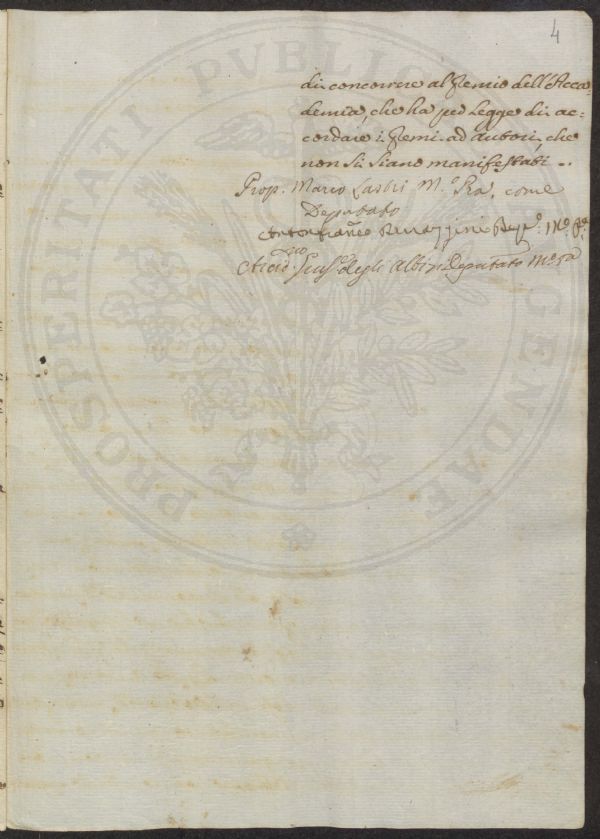 4
di concorrere al Premio dell'Acca=
demia, che ha per Legge di ac=
cordare i Premi ad autori, che
non si siano manifestati ..
Prop. Marco Lastri M.o Pra. come
Deputato
Depo. Mo. Pa.
Arcid. degli Albizi Deputato Mo. Pa
PROSPERITATI PVBLICAE AVGENDAE